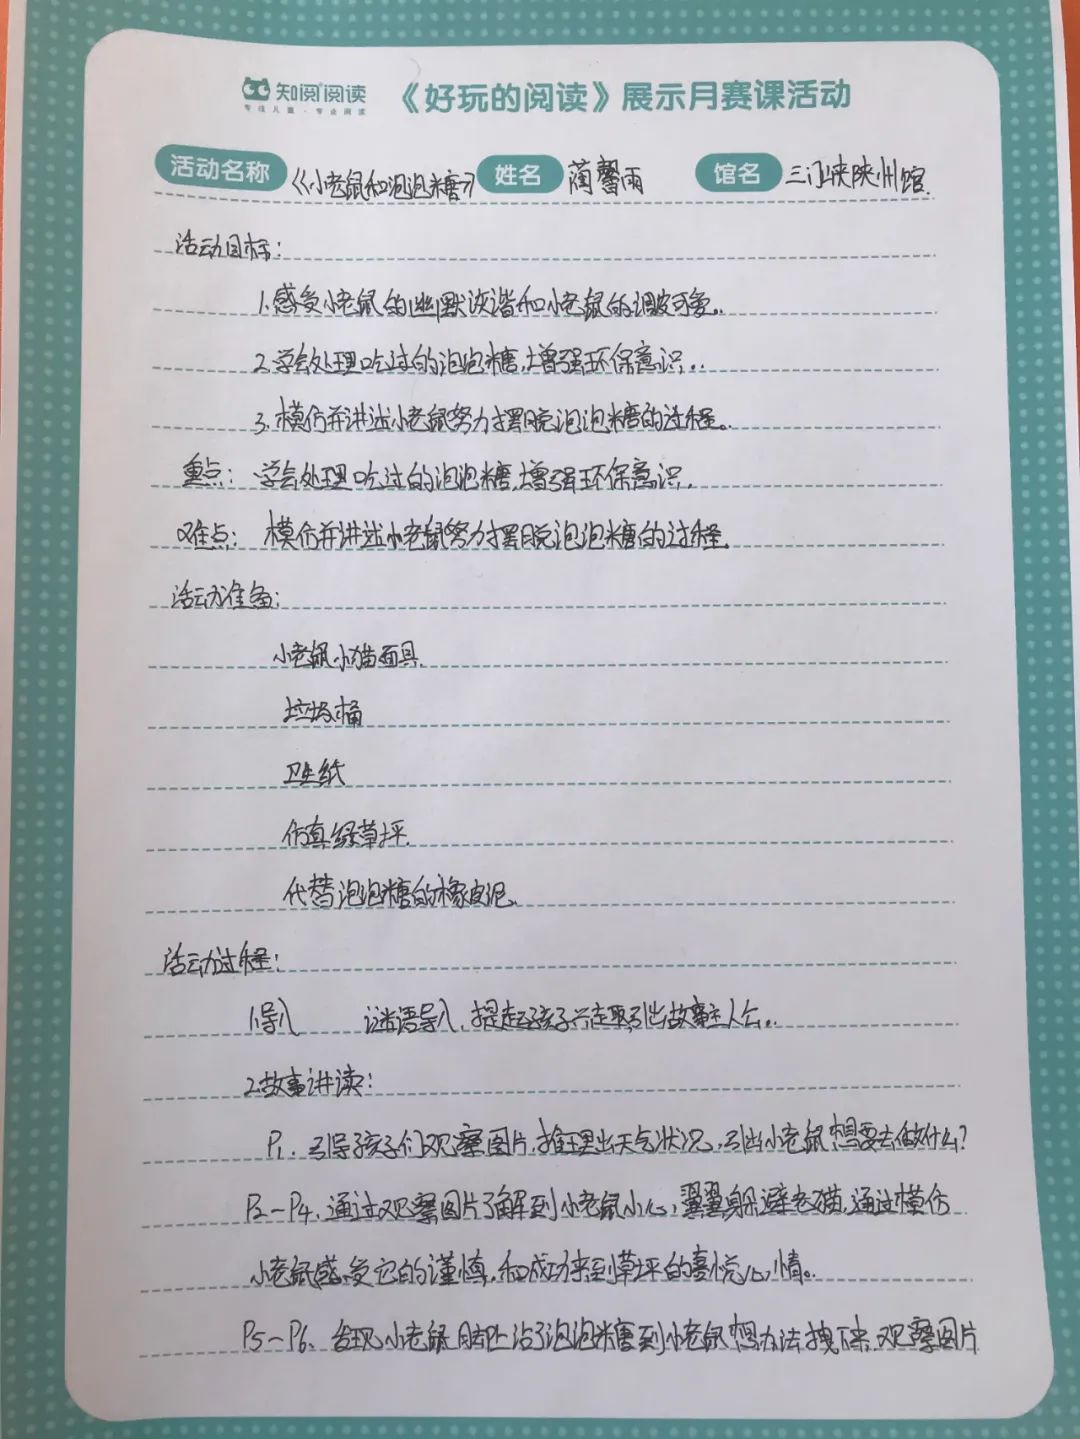 知阅阅读 《好玩的阅读》展示月赛课活动
专注儿童·专业阅读
活动名称 《小老鼠和泡泡糖》 姓名 蔺馨雨 馆名 三门峡陕州馆.
活动目标：
1.感受小老鼠的幽默诙谐和小老鼠的调皮可爱。
2.学会处理吃过的泡泡糖,增强环保意识。
3.模仿并讲述小老鼠努力摆脱泡泡糖的过程。
重点：学会处理吃过的泡泡糖,增强环保意识.
难点：模仿并讲述小老鼠努力摆脱泡泡糖的过程.
活动准备：
小老鼠小猫面具.
垃圾桶
卫生纸
仿真绿草坪.
代替泡泡糖的橡皮泥.
活动过程：
1.导入 谜语导入,提起孩子兴趣,引出故事主人公。
2.故事讲读：
P1、引导孩子们观察图片,推理出天气状况,引出小老鼠想要去做什么?
P2-P4、通过观察图片了解到小老鼠小心翼翼躲避老猫,通过模仿
小老鼠感受它的谨慎,和成功来到草坪的喜悦心情。
P5-P6、发现小老鼠脚上沾了泡泡糖到小老鼠想办法拽下来,观察图片